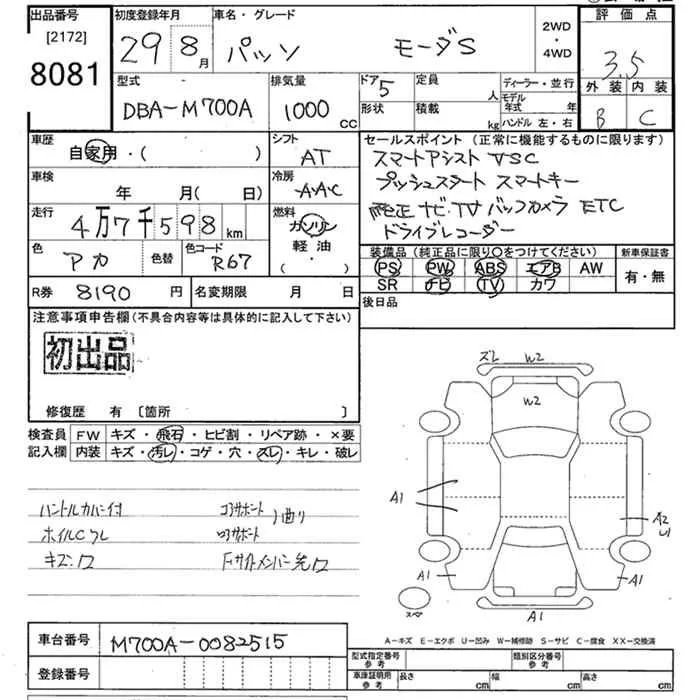 出品番号 初度登録年月 車名・グレード 2WD・4WD 評価点
[2172] 8081 29 8月 パッソ モーダS 3.5
型式 排気量 ドア 定員 ディーラー・並行 外装 内装
DBA-M700A 1000CC 5 人 モデル年式 年 B C
形状 積載 kg ハンドル 左・右
車歴 シフト セールスポイント(正常に機能するものに限ります)
自家用・( ) AT スマートアシスト VSC
車検 冷房 プッシュスタート スマートキー
年 月(日) AAC
走行 燃料 純正ナビTV バックカメラ ETC
4万7千598km ガソリン ドライブレコーダー
軽油・( )
色 色替 色コード 装備品(純正品に限り○をつけてください) 新車保証書
アカ R67 PS PW ABS エアB AW 有・無
R券 8190円 名変期限 月 日 SR ナビ TV カワ
後日品
注意事項申告欄(不具合内容等は具体的に記入して下さい)
初出品
修復歴 有〔箇所 〕
検査員 FW キズ・飛石・ヒビ割・リペア跡・×要
記入欄 内装 キズ・汚レ・コゲ・穴・スレ・キレ・破レ
ハンドルカバー付 コアサポート 曲り
ホイルCワレ
ズレ W2
W2
A1
A2
A1 A1
A1
スペア
A-キズ E-エクボ U-凹み W-補修跡 S-サビ C-腐食 XX-交換済
車台番号 M700A-0082515
登録番号
型式指定番号 参考 類別区分番号 参考
車庫証明用 参考 長さ cm 幅 cm 高さ cm